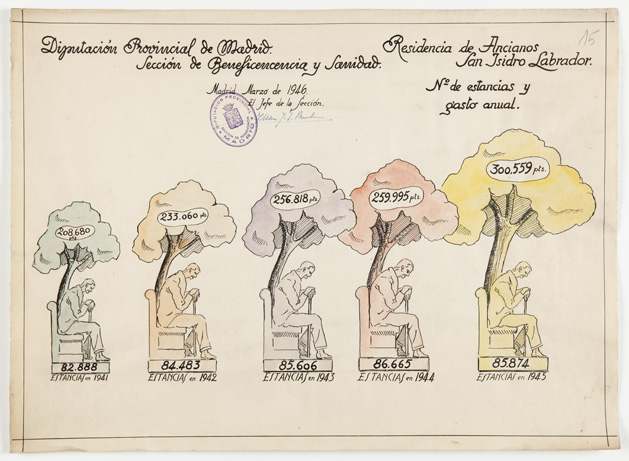 Diputación Provincial de Madrid.
Sección de Beneficencencia y Sanidad.
Madrid Marzo de 1946.
El Jefe de la Sección.
Residencia de Ancianos
San Isidro Labrador.
Nº de estancias y
gasto anual.
15
DIPUTACION PROVINCIAL
MADRID
208.680
pts.
233.060 pts.
256.818 pts.
259.995 pts.
300.559 pts.
82.888
ESTANCIAS en 1941
84.483
ESTANCIAS en 1942
85.606
ESTANCIAS en 1943
86.665
ESTANCIAS en 1944
85.874
ESTANCIAS en 1945